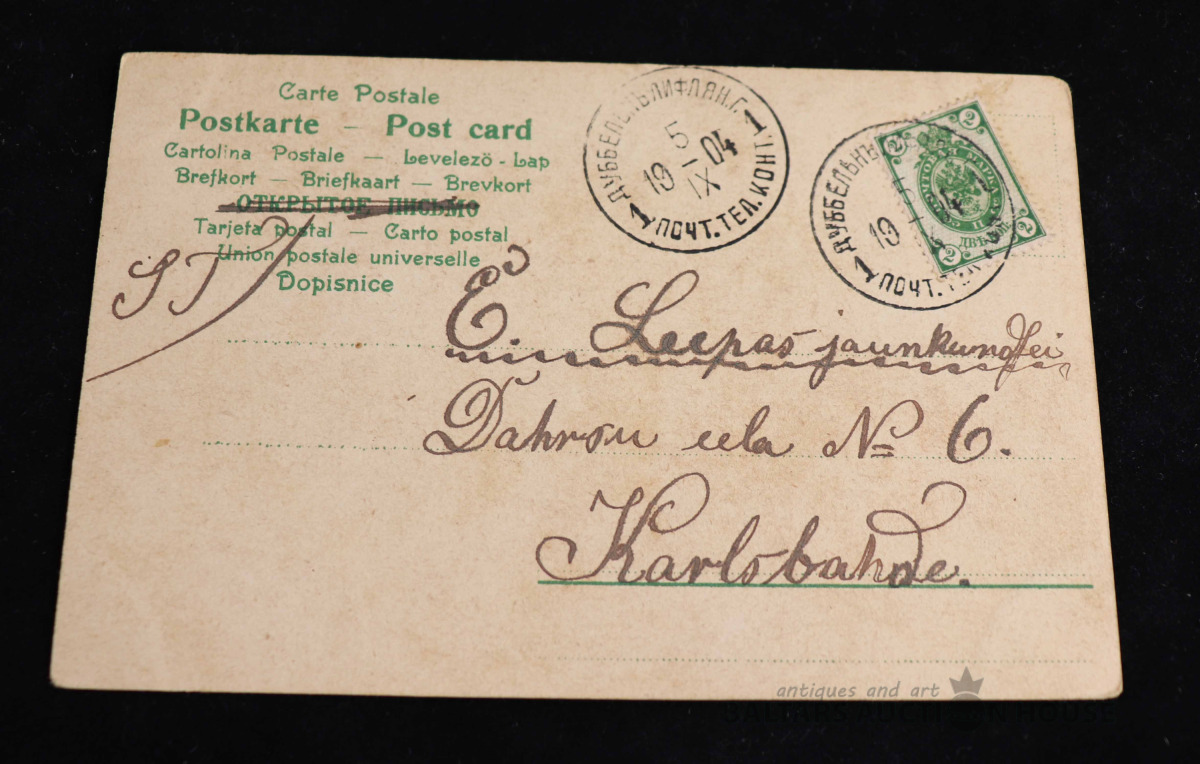 Carte Postale
Postkarte – Post card
Cartolina Postale — Levelezö - Lap
Brefkort — Briefkaart — Brevkort
ОТКРЫТОЕ ПИСЬМО
Tarjeta postal — Carto postal
Union postale universelle
Dopisnice
ДУББЕЛЬНЪ ЛИФЛЯН. Г.
5
19 IX 04
1 ПОЧТ. ТЕЛ. КОНТ. 1
ДУББЕЛЬНЪ
19 04
1 ПОЧТ. ТЕЛ.
2 2
2 2
ДВѢ КОП.
ST
E. Leepas jaunkundsei
Dahrsu eela № 6.
Karlsbahde.
antiques and art
BALTARS AUCTION HOUSE